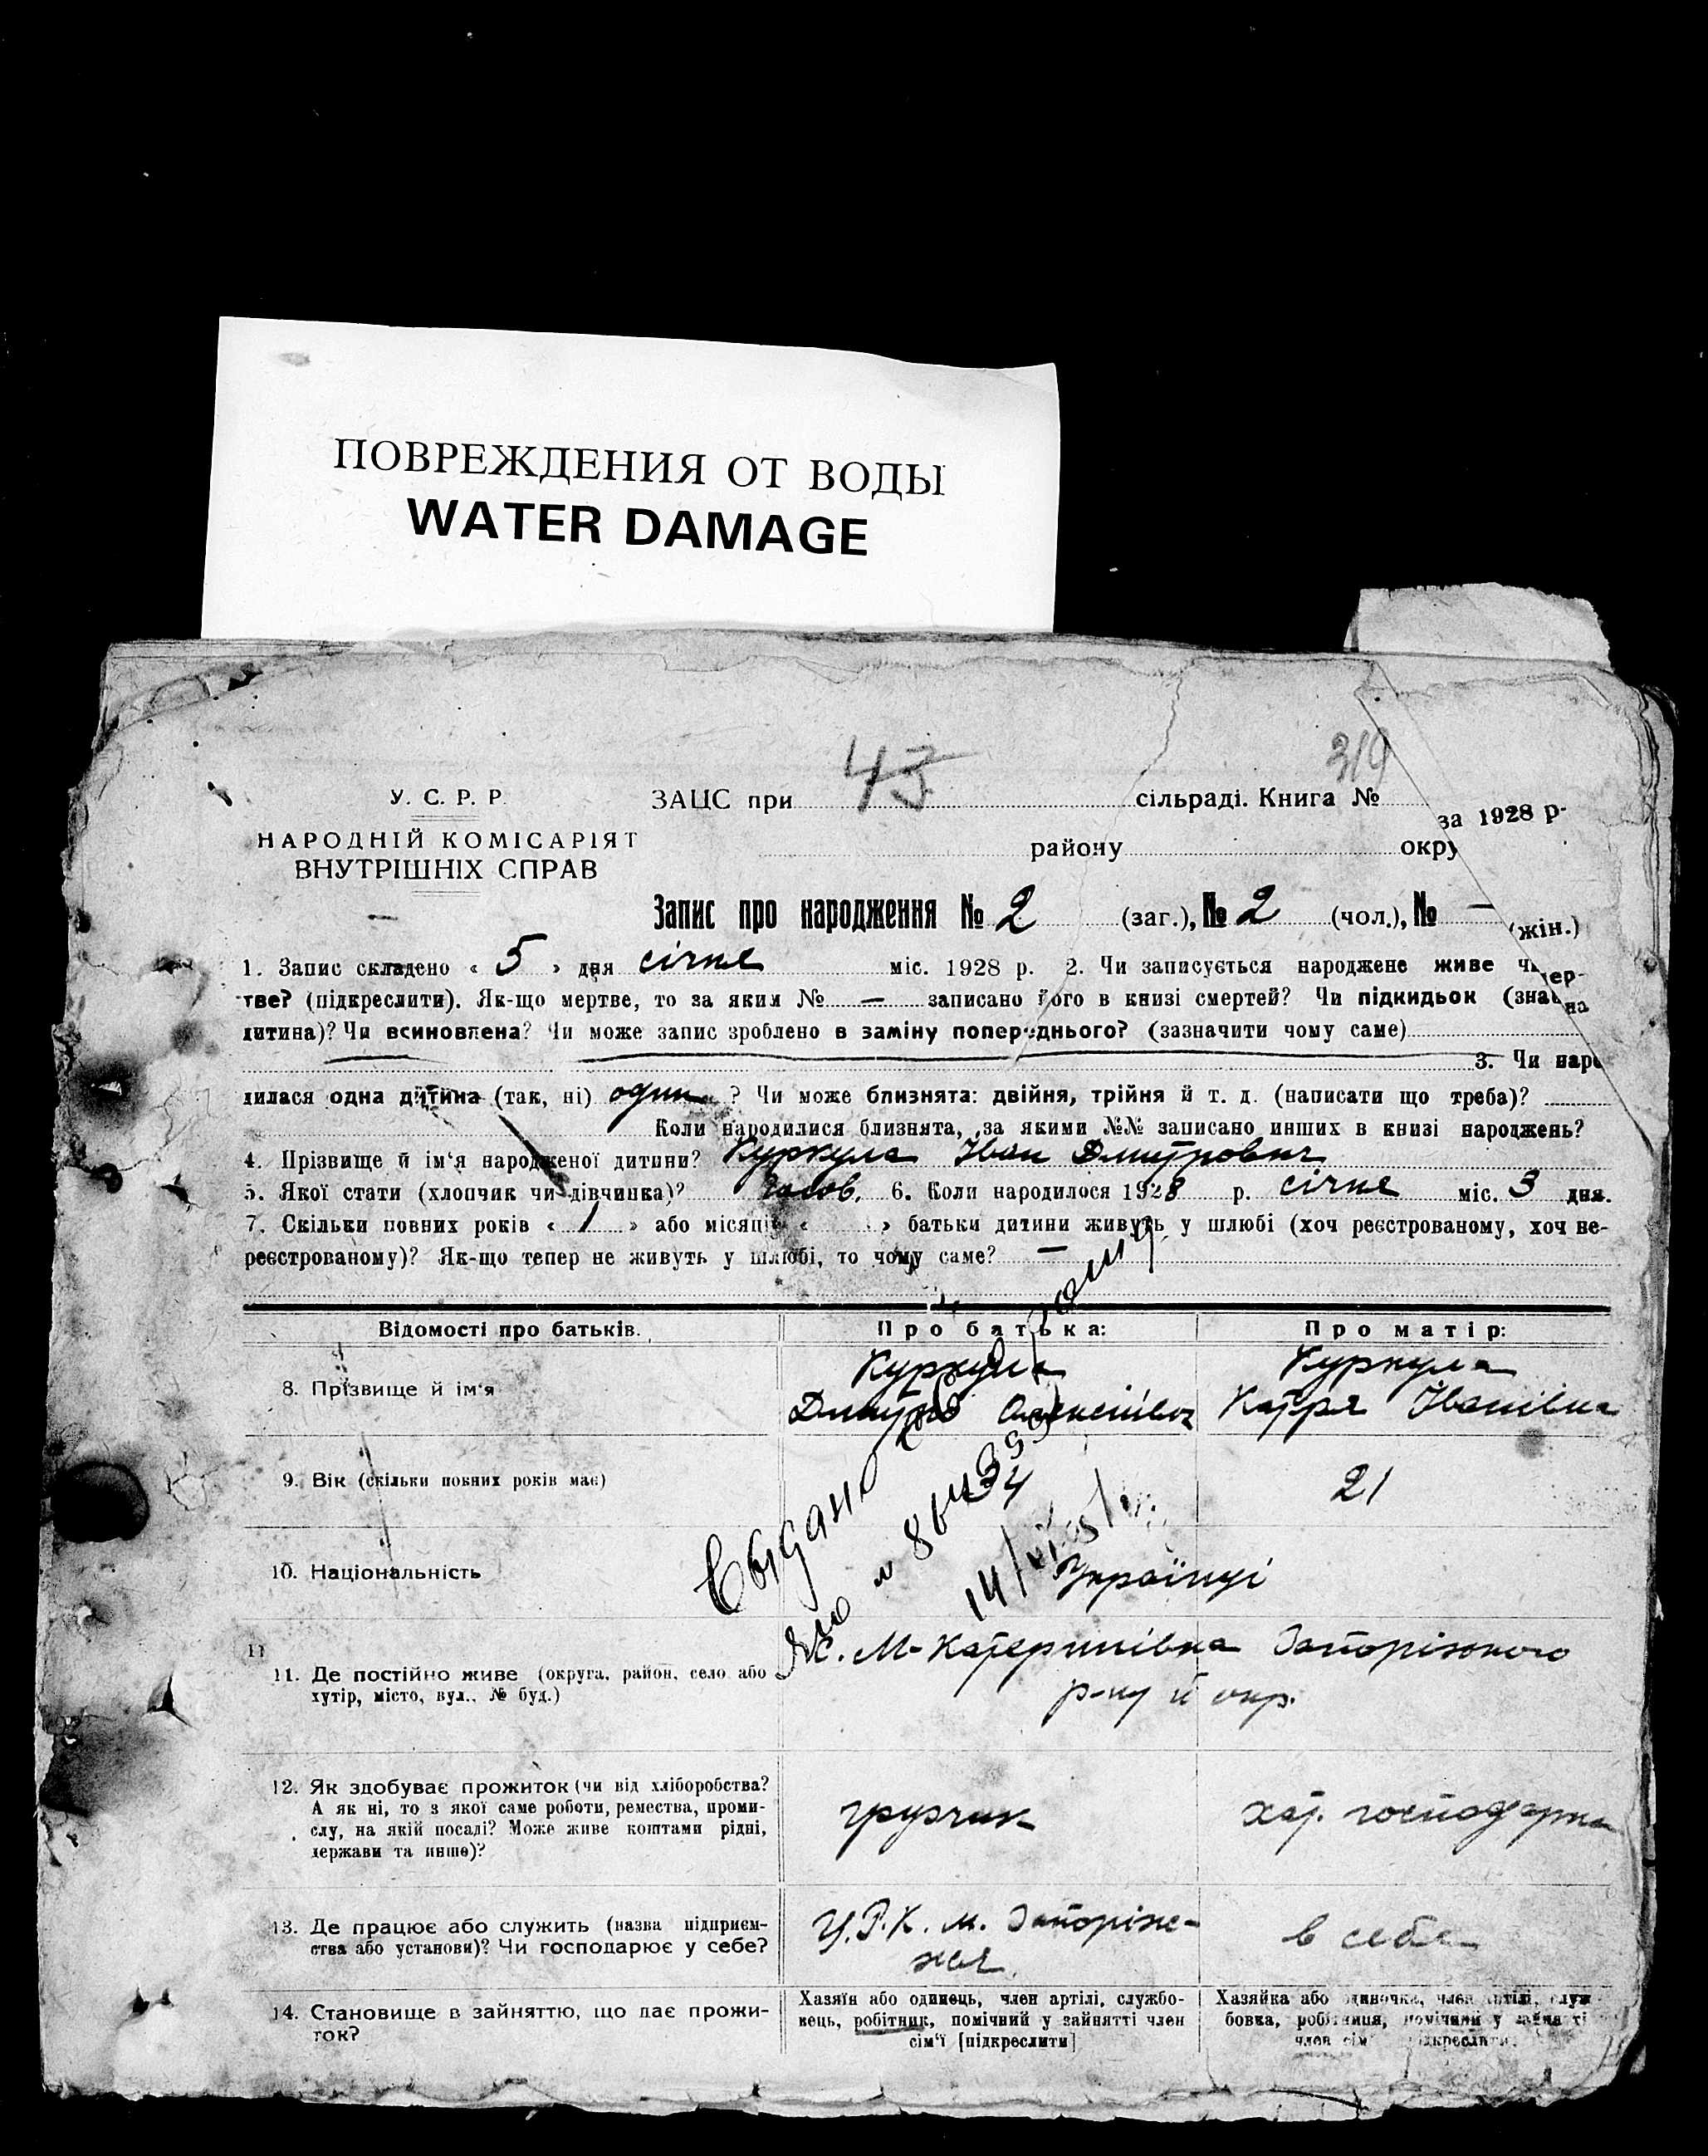 ПОВРЕЖДЕНИЯ ОТ ВОДЫ
WATER DAMAGE
43 319
У. С. Р. Р. ЗАЦС при сільраді. Книга № за 1928 р.
НАРОДНІЙ КОМІСАРІЯТ району окру
ВНУТРІШНІХ СПРАВ
Запис про народження № 2 (заг.), № 2 (чол.), № — (жін.)
1. Запис складено « 5 » дня січне міс. 1928 р. 2. Чи записується народжене живе чи мер-
тве? (підкреслити). Як-що мертве, то за яким № — записано його в книзі смертей? Чи підкидьок (знай на
дитина)? Чи всиновлена? Чи може запис зроблено в заміну попереднього? (зазначити чому саме)
3. Чи наро
дилася одна дитина (так, ні) один ? Чи може близнята: двійня, трійня й т. д. (написати що треба)?
Коли народилися близнята, за якими №№ записано инших в книзі народжень?
4. Прізвище й ім'я народженої дитини? Куркула Іван Дмитрович
5. Якої стати (хлопчик чи дівчинка)? 6. Коли народилося 1928 р. січне міс. 3 дня.
7. Скільки повних років « 1 » або місяців « » батьки дитини живуть у шлюбі (хоч реєстрованому, хоч не-
реєстрованому)? Як-що тепер не живуть у шлюбі, то чому саме? —
Відомості про батьків. Про батька: Про матір:
8. Прізвище й ім'я Куркула Куркула
Дмитро Олексійович Катря Іванівна
9. Вік (скільки повних років має) 34 21
10. Національність Українці
11
11. Де постійно живе (округа, район, село або С. М-Катеринівка Запорізького
хутір, місто, вул., № буд.) р-ну й окр.
12. Як здобуває прожиток (чи від хліборобства?
А як ні, то з якої саме роботи, ремества, проми- грузчик хат. господарка
слу, на якій посалі? Може живе коштами рідні,
держави та инше)?
13. Де працює або служить (назва підприєм- Ц.Р.К. м. Запоріж- в себе
ства або установи)? Чи господарює у себе? жжя
14. Становище в зайняттю, що дає прожи- Хазяїн або одинець, член артілі, службо- Хазяйка або одиночка, член артілі, служ
ток? вець, робітник, помічний у зайнятті член бовка, робітниця, помічний у зайнятті
сім'ї [підкреслити] член сім підкреслити